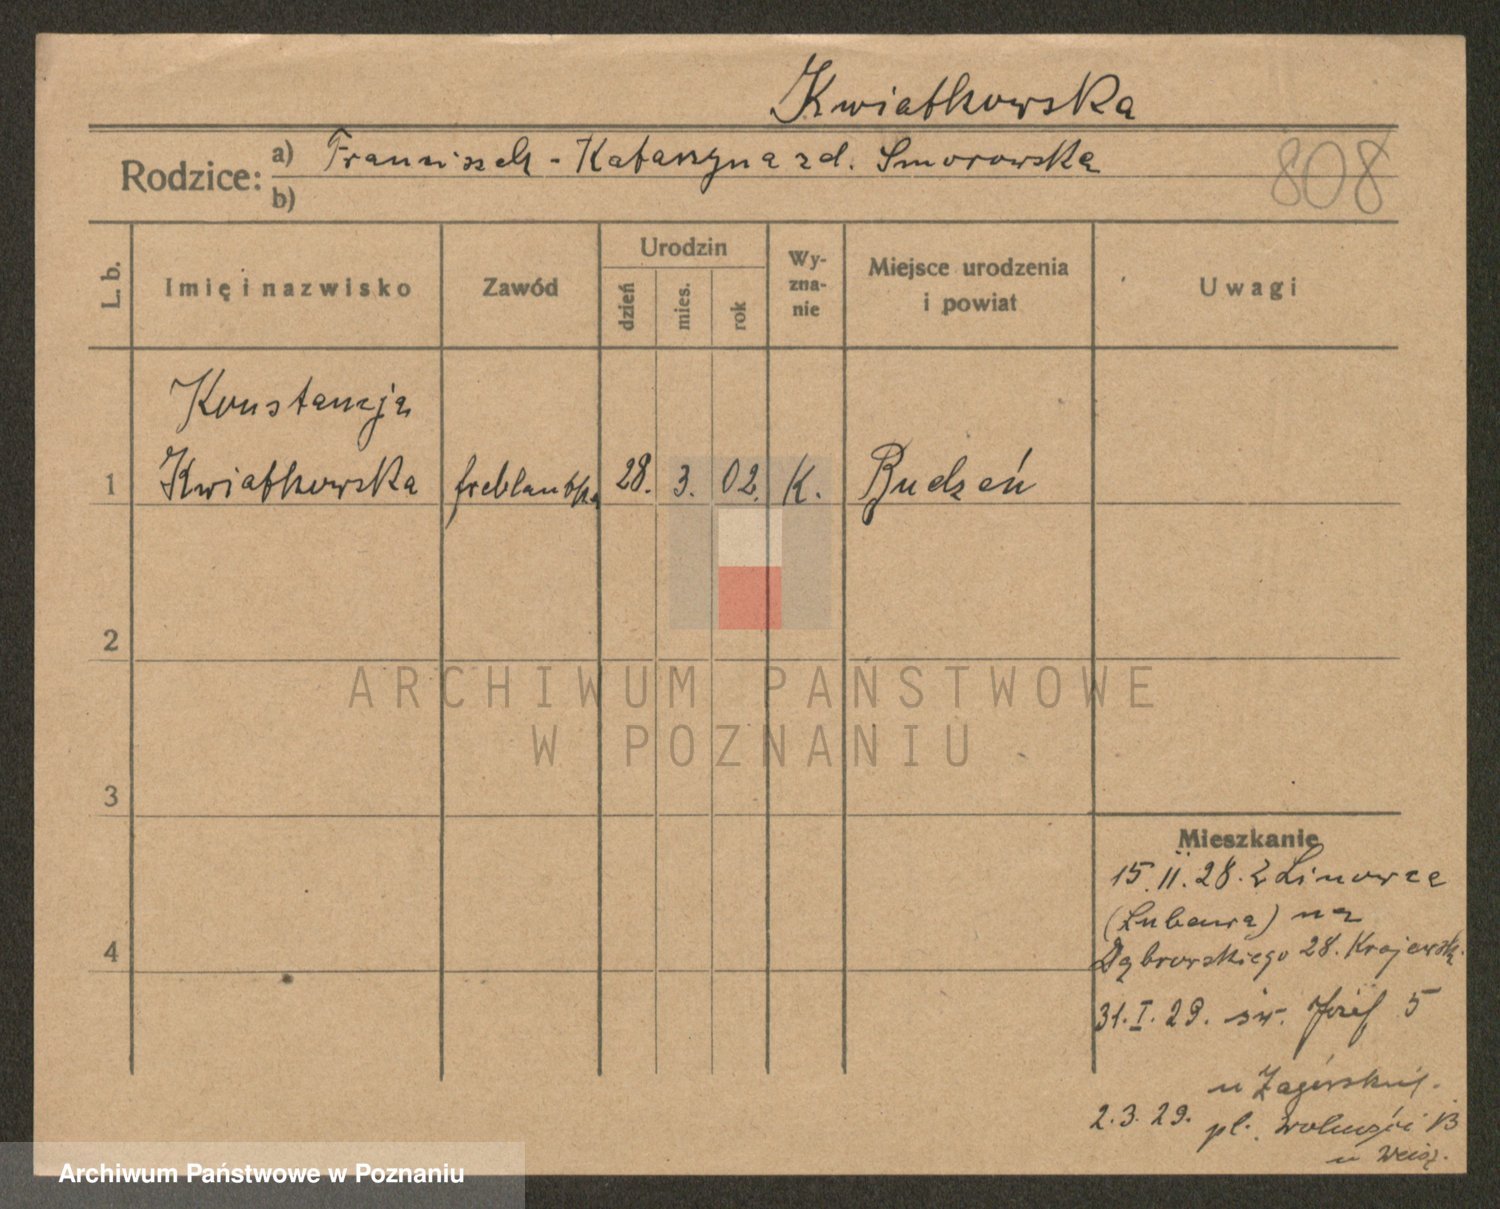 Kwiatkowska
Rodzice: a) Franciszek - Katarzyna zd. Smorowska
b)
808
L. b.
Imię i nazwisko
Zawód
Urodzin
dzień
mies.
rok
Wy-
zna-
nie
Miejsce urodzenia
i powiat
Uwagi
Konstancja
1 Kwiatkowska freblanka 28. 3. 02. K. Rudzeń
2
3
4
ARCHIWUM PAŃSTWOWE
W POZNANIU
Mieszkanie
15.II.28. z Linowca
(Lubawa) na
Dąbrowskiego 28. Krajewsk.
31.I.29. św. Józef 5
u Zagórskiej.
2.3.29. pl. Wolności
u
Archiwum Państwowe w Poznaniu